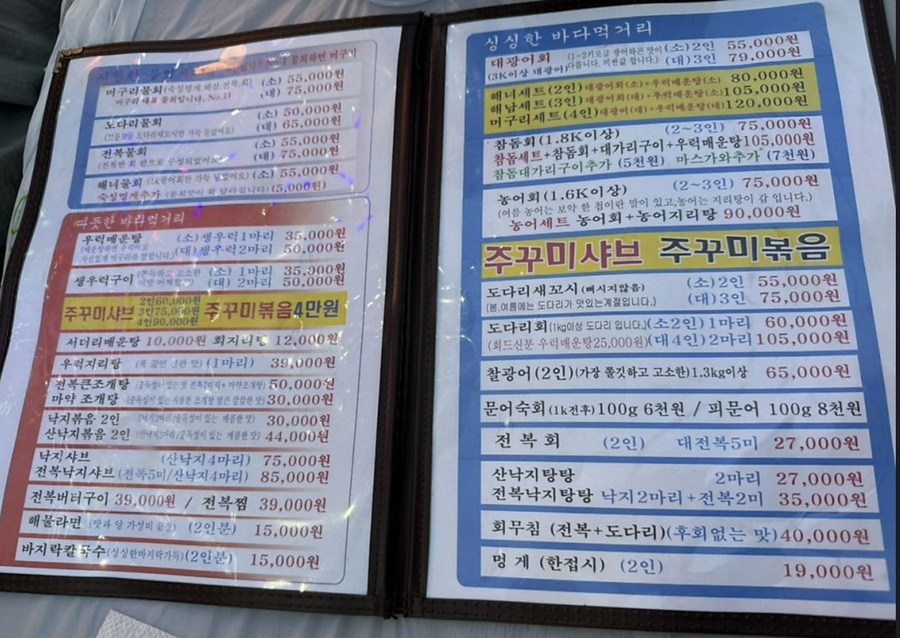 머구리물회 (소) 55,000원
머구리 대표 물회입니다. No.1! (대) 75,000원
도다리물회 (소) 50,000원
(대) 65,000원
전복물회 (소) 55,000원
(대) 75,000원
해녀물회 (소) 55,000원
숙성멍게추가 (5,000원)
따뜻한 바다먹거리
우럭매운탕 (소) 생우럭1마리 35,000원
(대) 생우럭2마리 50,000원
생우럭구이 (소) 1마리 35,000원
(대) 2마리 50,000원
주꾸미샤브 2인60,000원 3인75,000원 4인90,000원 주꾸미볶음4만원
서더리매운탕 10,000원 회지리탕 12,000원
우럭지리탕 (1마리) 39,000원
전복큰조개탕 50,000원
마약 조개탕 30,000원
낙지볶음 2인 30,000원
산낙지볶음 2인 44,000원
낙지샤브 (산낙지4마리) 75,000원
전복낙지샤브 (전복5미/산낙지4마리) 85,000원
전복버터구이 39,000원 / 전복찜 39,000원
해물라면 (맛과 양 가성비 끝장) (2인분) 15,000원
바지락칼국수(싱싱한바지락가득)(2인분) 15,000원
싱싱한 바다먹거리
대광어회 (소)2인 55,000원
(3K이상 대광어) (대)3인 79,000원
해녀세트(2인) 대광어회(소)+우럭매운탕(소) 80,000원
해남세트(3인) 대광어회(대)+우럭매운탕(소) 105,000원
머구리세트(4인) 대광어회(대)+우럭매운탕(대) 120,000원
참돔회(1.8K이상) (2~3인) 75,000원
참돔세트+참돔회+대가리구이+우럭매운탕105,000원
참돔대가리구이추가 (5천원) 마스가와추가 (7천원)
농어회(1.6K이상) (2~3인) 75,000원
(여름 농어는 보약 한 첩이란 말이 있고,농어는 지리탕이 갑 입니다.)
농어세트 농어회+농어지리탕 90,000원
주꾸미샤브 주꾸미볶음
도다리새꼬시(뼈시지않음) (소)2인 55,000원
(봄,여름에는 도다리가 맛있는계절입니다.) (대)3인 75,000원
도다리회(1kg이상 도다리 입니다.)(소2인) 1마리 60,000원
(회드신분 우럭매운탕25,000원)(대4인) 2마리 105,000원
찰광어(2인)(가장 쫄깃하고 고소한)1.3kg이상 65,000원
문어숙회(1k전후)100g 6천원 / 피문어 100g 8천원
전복회 (2인) 대전복5미 27,000원
산낙지탕탕 2마리 27,000원
전복낙지탕탕 낙지2마리+전복2미 35,000원
회무침 (전복+도다리)(후회없는 맛)40,000원
멍게 (한접시) (2인) 19,000원